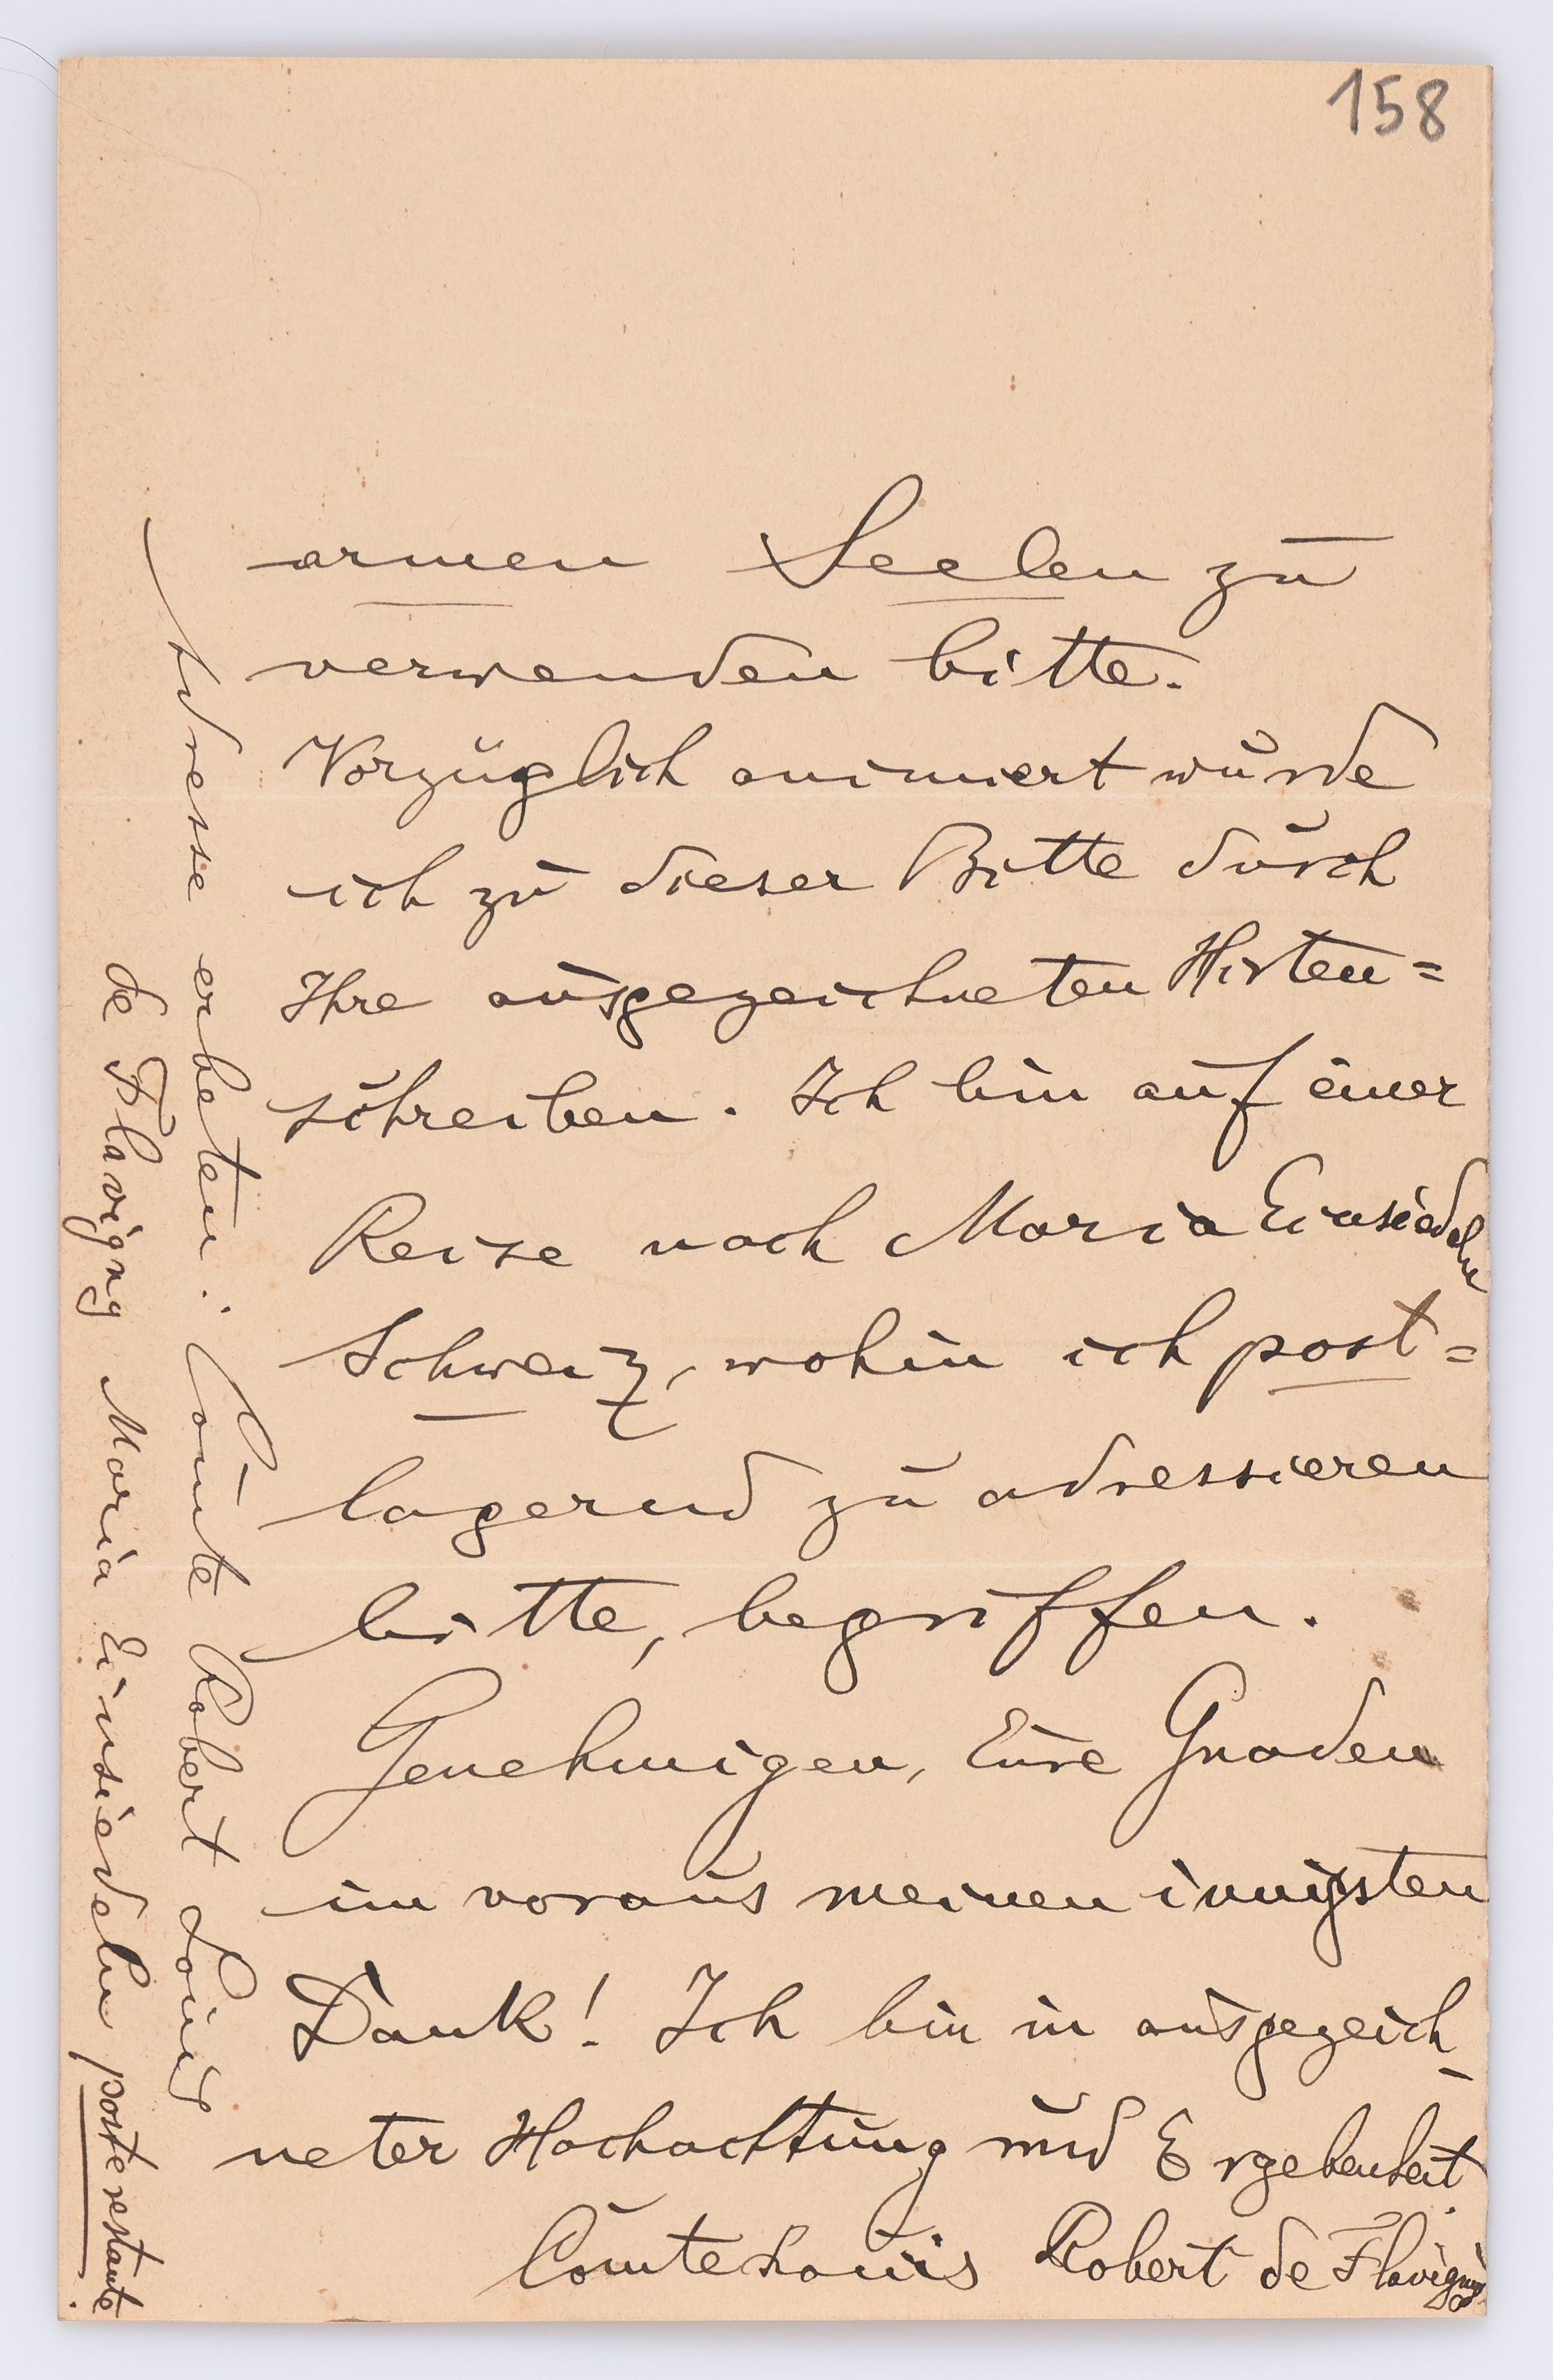 158
armen Seelen zu
verwenden bitte.
Vorzüglich animiert wurde
ich zu dieser Bitte durch
Ihre ausgezeichneten Hirten=
schreiben. Ich bin auf einer
Reise nach Maria Einsiedeln
Schweiz, wohin ich post=
lagernd zu adressieren
bitte, begriffen.
Genehmigen, Eure Gnaden
im voraus meinen innigsten
Dank! Ich bin in ausgezeich-
neter Hochachtung und Ergebenheit.
Comte Louis Robert de Flavigny
Adresse erbeten: Comte Robert Louis
de Flavigny Maria Einsiedeln poste restante.